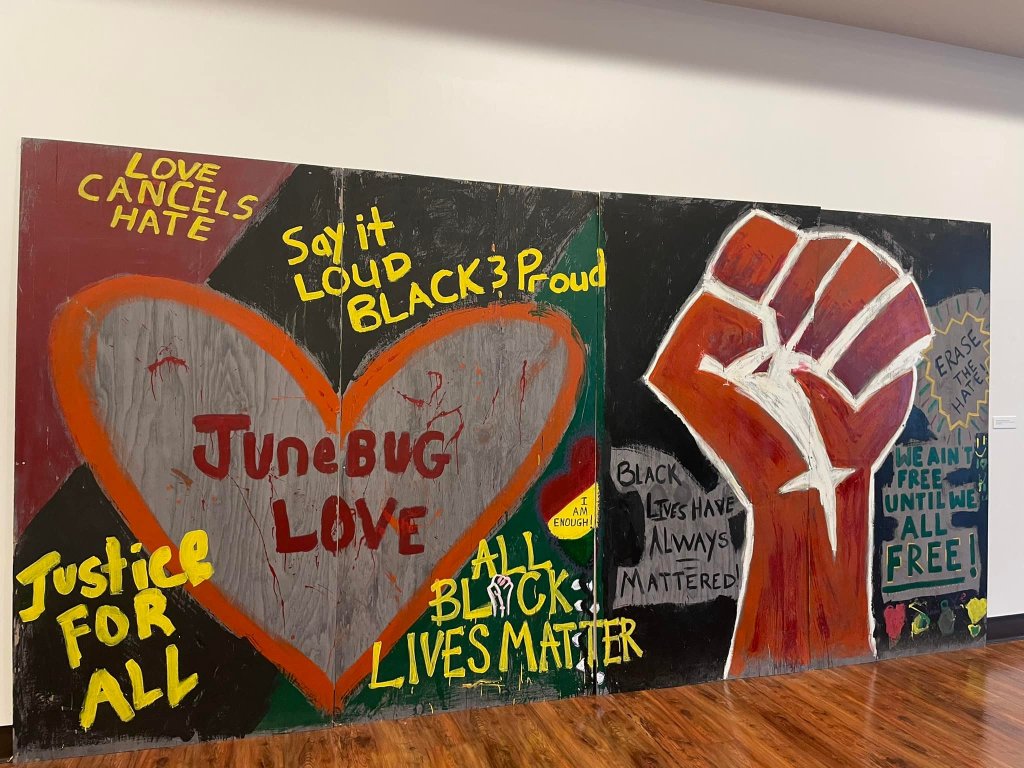 LOVE
CANCELS
HATE
Say it
LOUD
BLACK & Proud
JuneBUG
LOVE
I
AM
ENOUGH!
Justice
FOR
ALL
ALL
BLACK
LIVES MATTER
BLACK
LIVES HAVE
ALWAYS
MATTERED!
ERASE
THE
HATE!
WE AIN'T
FREE
UNTIL WE
ALL
FREE!